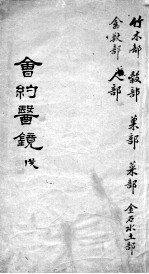 竹木部 穀部 菜部 菓部 金石水土部
禽獸部 人部
會約醫鏡 戊